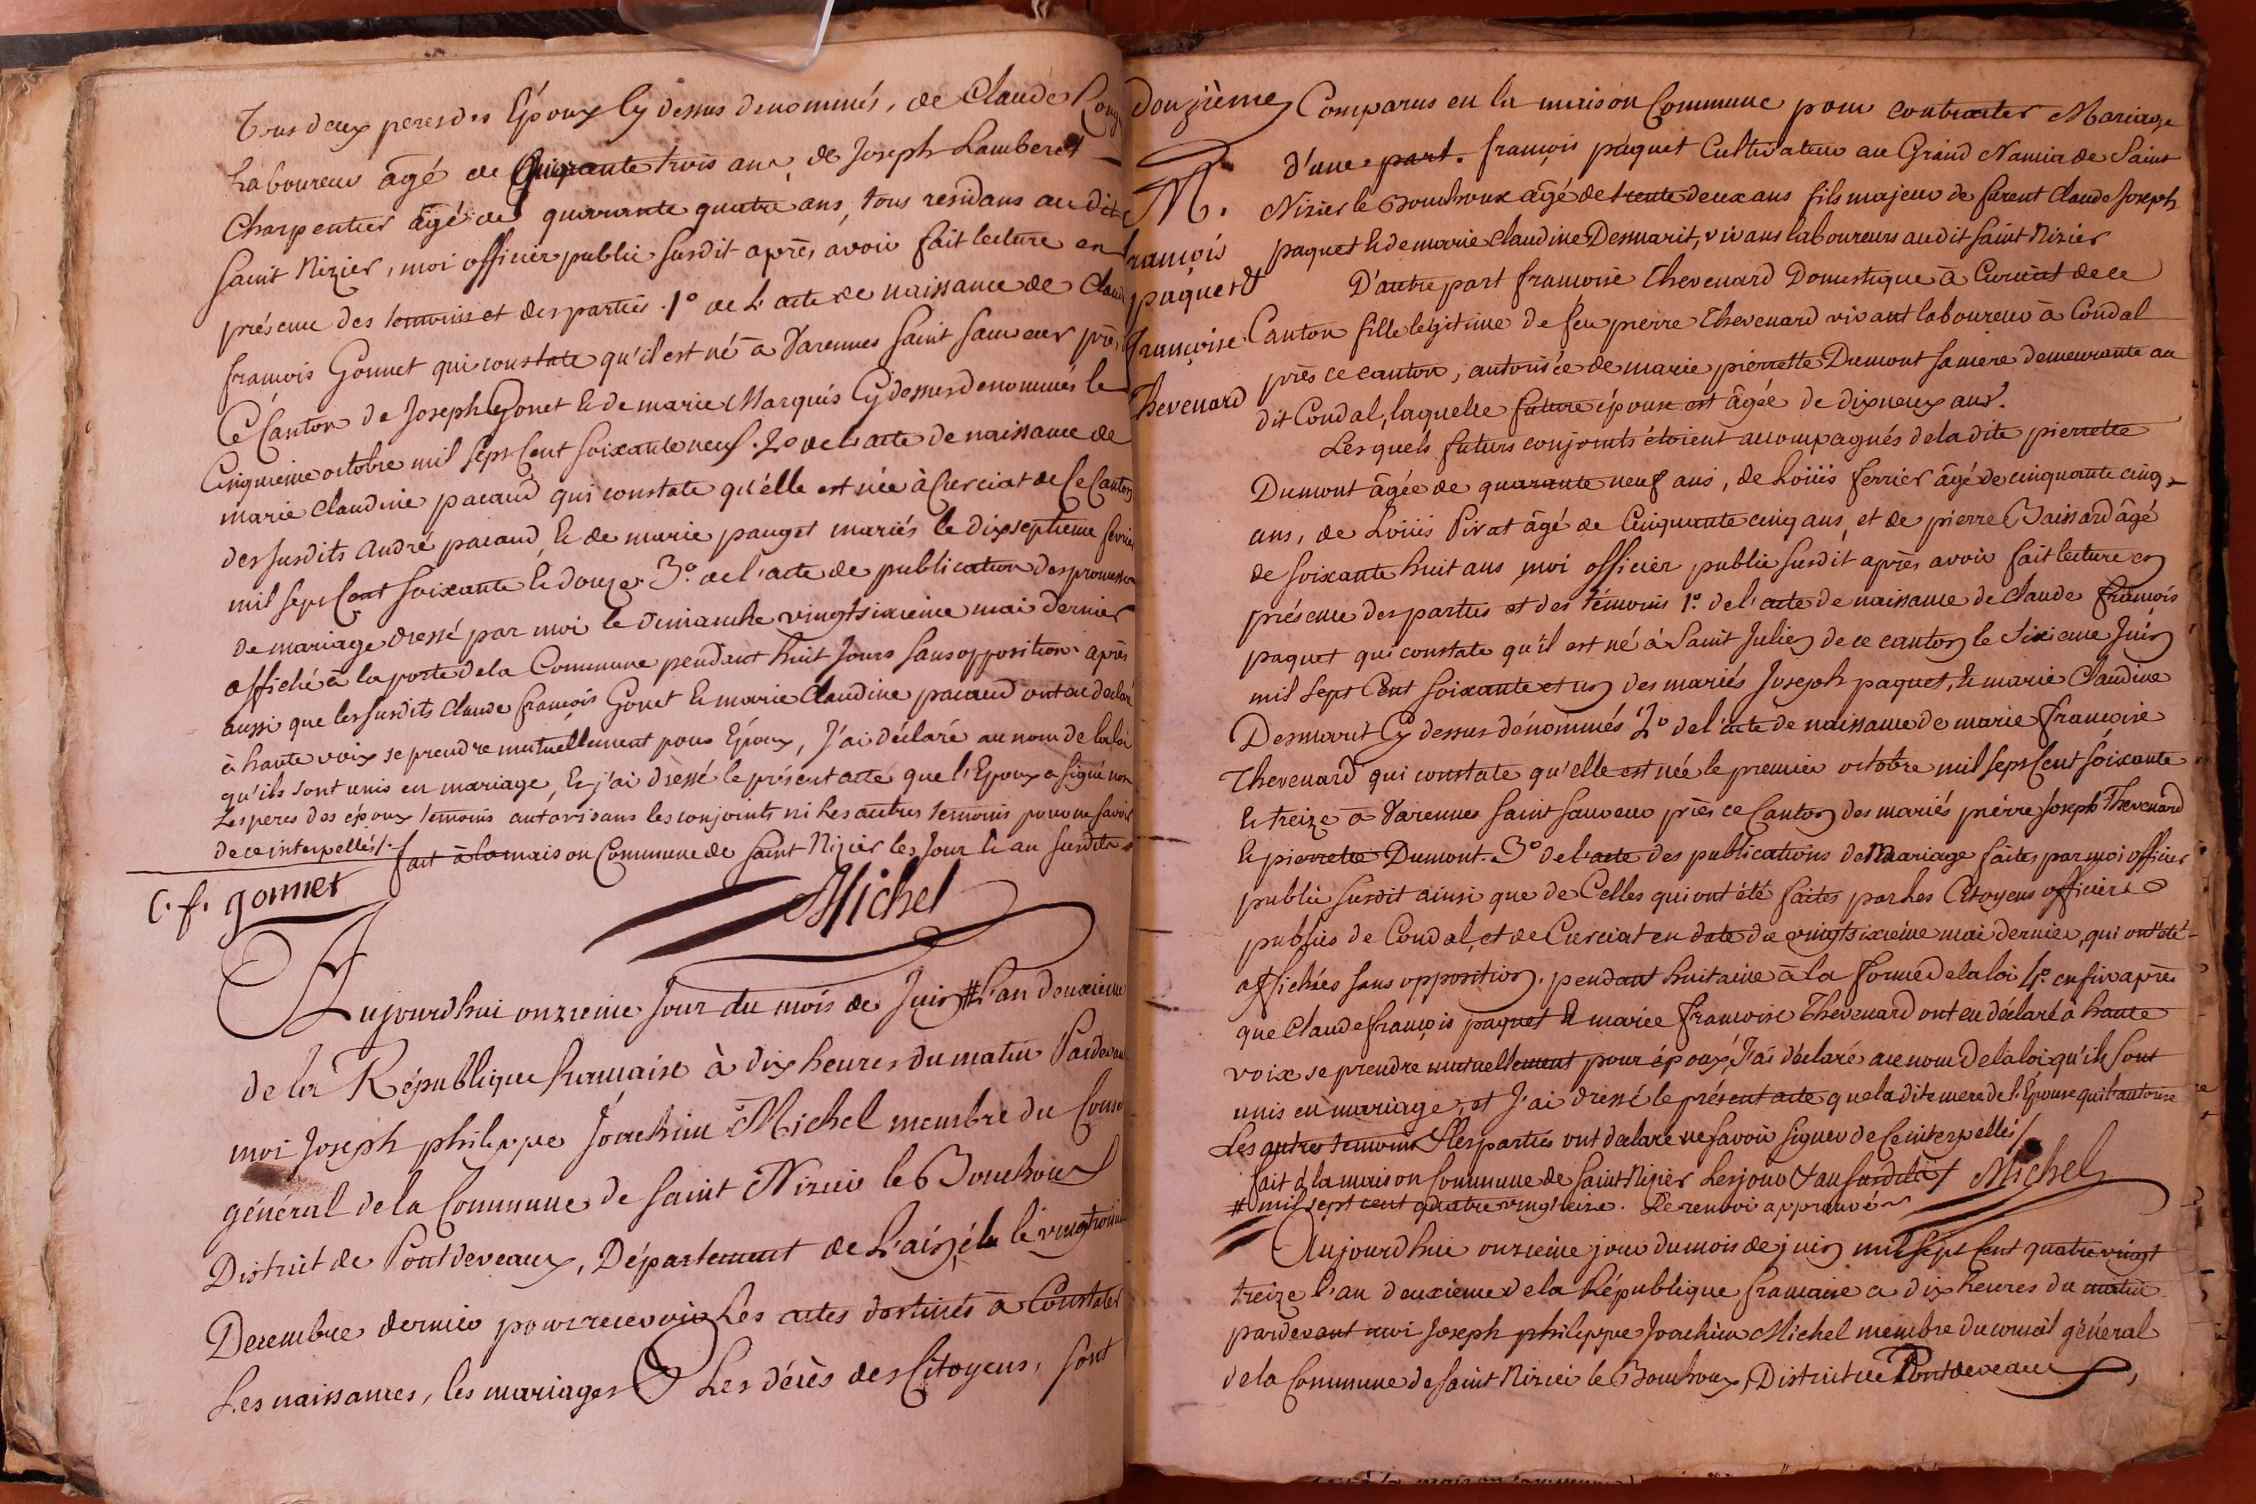 Tous deux peres des Epoux Cy dessus denommés, de Claude
Laboureur âgé de Cinquante trois ans, de Joseph Lamberet
Charpentier âgé de quarante quatre ans, tous residans au dit
Saint Nizier, moi officier public susdit après avoir fait lecture en
présence des temoins et des parties. 1º de L'acte de naissance de
françois Gonnet qui constate qu'il est né à Varennes Saint Sauveur près
Ce Canton de Joseph Gonet & de marie Marquis Cy dessus denommés le
Cinquieme octobre mil sept Cent soixante neuf. 2º de l'acte de naissance de
marie Claudine pacaud qui constate qu'elle est née à Curciat de Ce Canton
des susdits andré pacaud, & de marie pauget mariés le dixseptieme fevrier
mil sept Cent soixante & douze. 3º. de l'acte de publication des promesses
de mariage dressé par moi le Dimanche vingtsixieme mai dernier
affiché à la porte de la Commune pendant huit Jours sans opposition. après
aussi que les susdits Claude françois Gonet & marie Claudine pacaud ont eu declaré
à haute voix se prendre mutuellement pour Epoux, J'ai déclaré au nom de la loi
qu'ils sont unis en mariage, & j'ai dressé le présent acte que l'Epoux a signé non
Les peres des époux temoins autorisans les conjoints ni Les autres temoins pour ne savoir
de ce interpellés/. fait à la maison Commune de Saint Nizier les Jour & an susdits
C. f. gonnet
Michel
Aujourdhui onzieme Jour du mois de Juin # L'an deuxieme
de la République française à dix heures du matin Pardevant
moi Joseph philippe Joachim Michel membre du
général de la Commune de Saint Nizier le Bouchoux
District de Pontdevaux, Département de L'ain, élu le
Decembre dernier pour recevoir Les actes destinés à Constater
Les naissances, les mariages & Les décès des Citoyens, sont
Douzième Comparus en la maison Commune pour contracter Mariage
M. d'une part. françois paquet Cultivateur au Grand Namia de Saint
Nizier le Bouchoux âgé de trente deux ans fils majeur de furent Claude Joseph
françois paquet & de marie Claudine Desmarit, vivans laboureurs audit Saint Nizier
paquet & D'autre part françoise Thevenard Domestique à Curciat de ce
françoise Canton fille legitime de feu pierre Thevenard vivant laboureur à Condal
près ce canton, autorisée de marie pierrette Dumont sa mere demeurante au
Thevenard dit Condal, laquelle future épouse est âgée de dixneux ans.
Lesquels futurs conjoints étoient accompagnés de la dite pierrette
Dumont âgée de quarante neuf ans, de Loüis ferrier âgé de cinquante cinq
ans, de Loüis Pirat âgé de Cinquante cinq ans, et de pierre Baissard âgé
de soixante huit ans moi officier public susdit après avoir fait lecture en
présence des parties et des témoins 1º. de l'acte de naissance de claude françois
paquet qui constate qu'il est né à Saint Julien de ce canton le Sixieme Juin
mil sept Cent soixante et un des mariés Joseph paquet, & marie Claudine
Desmarit Cy dessus dénommés 2º de l'acte de naissance de marie françoise
Thevenard qui constate qu'elle est née le premier octobre mil sept Cent soixante
& treize à Varennes saint sauveur près ce Canton des mariés pierre Joseph Thevenard
& pierrette Dumont. 3º de l'acte des publications de Mariage faites par moi officier
public susdit ainsi que de Celles qui ont été faites par les Citoyens officiers
publics de Condal, et de Curciat en date du vingtsixieme mai dernier, qui ont été
affichées sans opposition. pendant huitaine à la forme de la loi 4º. enfin après
que Claude françois paquet & marie françoise Thevenard ont eu déclaré à haute
voix se prendre mutuellement pour époux, J'ai déclaré au nom de la loi qu'ils sont
unis en mariage, et J'ai dressé le présent acte que la dite mere de l'Epouse qui l'autorise
Les autres temoins & les parties ont declaré ne savoir signer de Ce interpellés/
fait à la maison Commune de Saint Nizier Les jour & an susdits/ Michel
# mil sept cent quatre vingt treize. Le renvoi approuvé
Aujourdhui onzieme jour du mois de juin mil sept Cent quatre vingt
treize l'an deuxieme de la République française a dix heures du matin
pardevant moi Joseph philippe Joachim Michel membre du conseil général
de la Commune de Saint Nizier le Bouchoux, District de Pontdevaux,